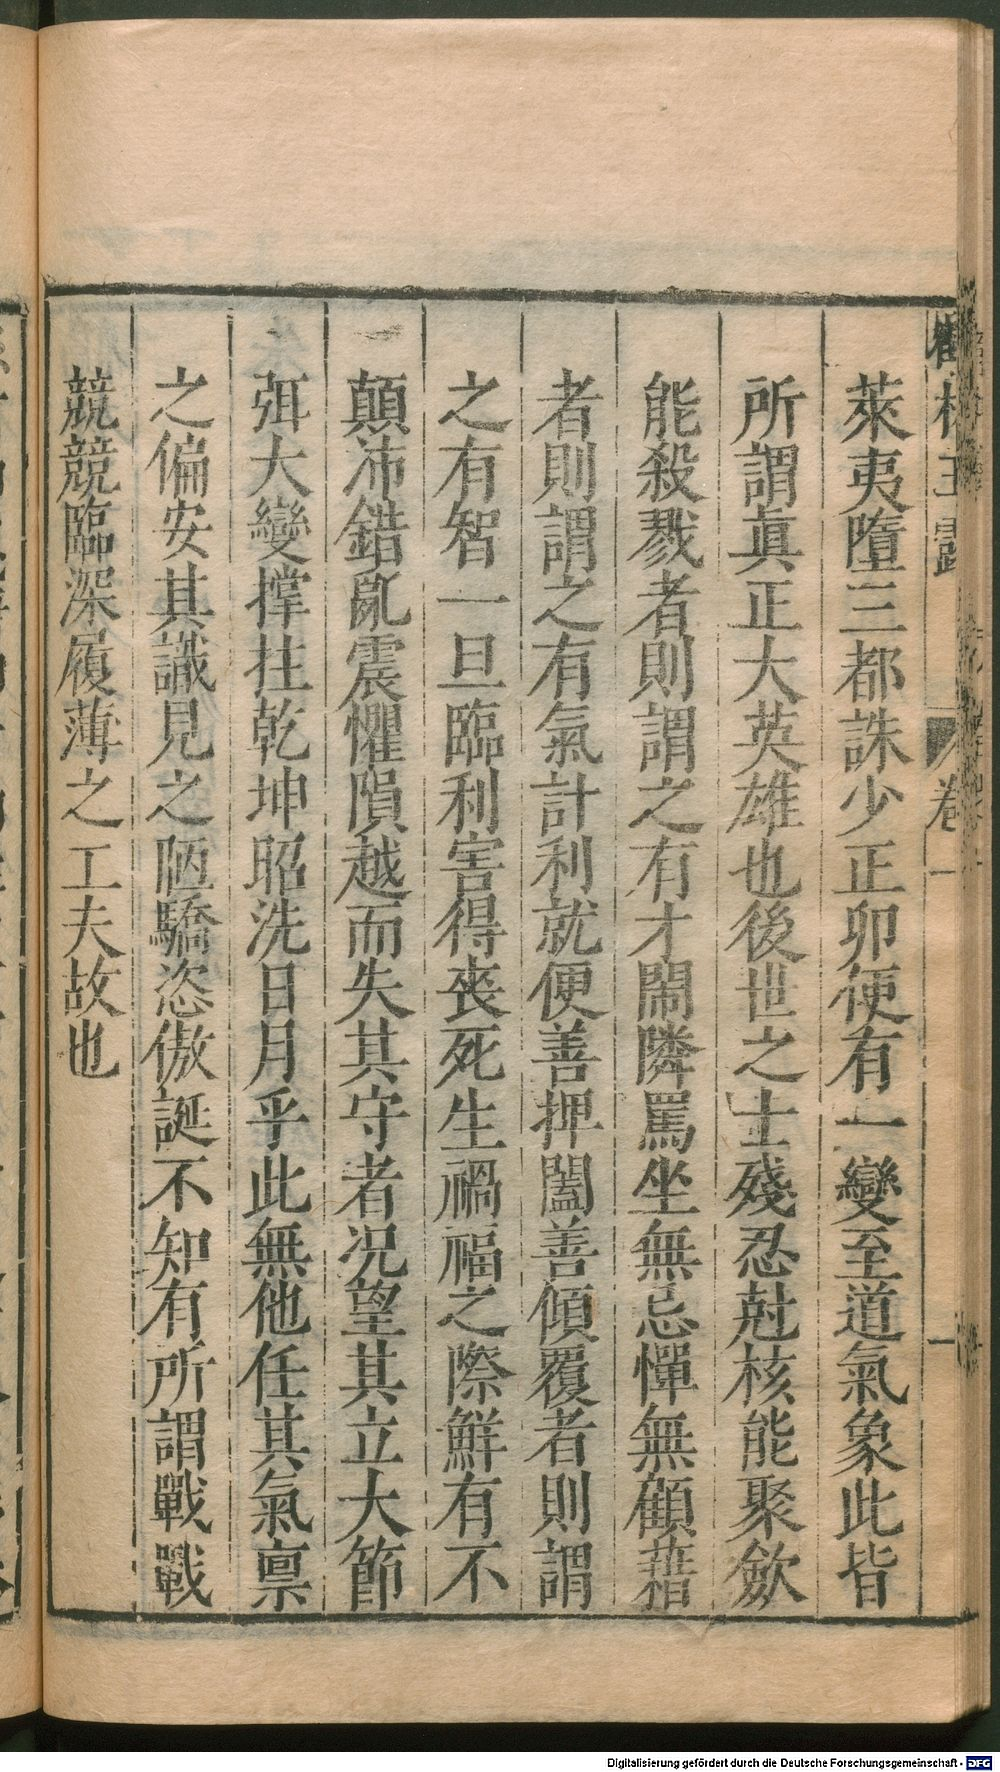 萊夷墮三都誅少正卯便有一變至道氣象此皆
所謂眞正大英雄也後世之士殘忍尅核能聚斂
能殺戮者則謂之有才鬧隣罵坐無忌憚無顧藉
者則謂之有氣計利就便善押闔善傾覆者則謂
之有智一旦臨利害得喪死生禍福之際鮮有不
顛沛錯亂震懼隕越而失其守者况望其立大節
弭大變撑拄乾坤昭洗日月乎此無他任其氣禀
之偏安其識見之陋驕恣傲誕不知有所謂戰戰
競競臨深履薄之工夫故也
卷一
一
Digitalisierung gefördert durch die Deutsche Forschungsgemeinschaft - DFG